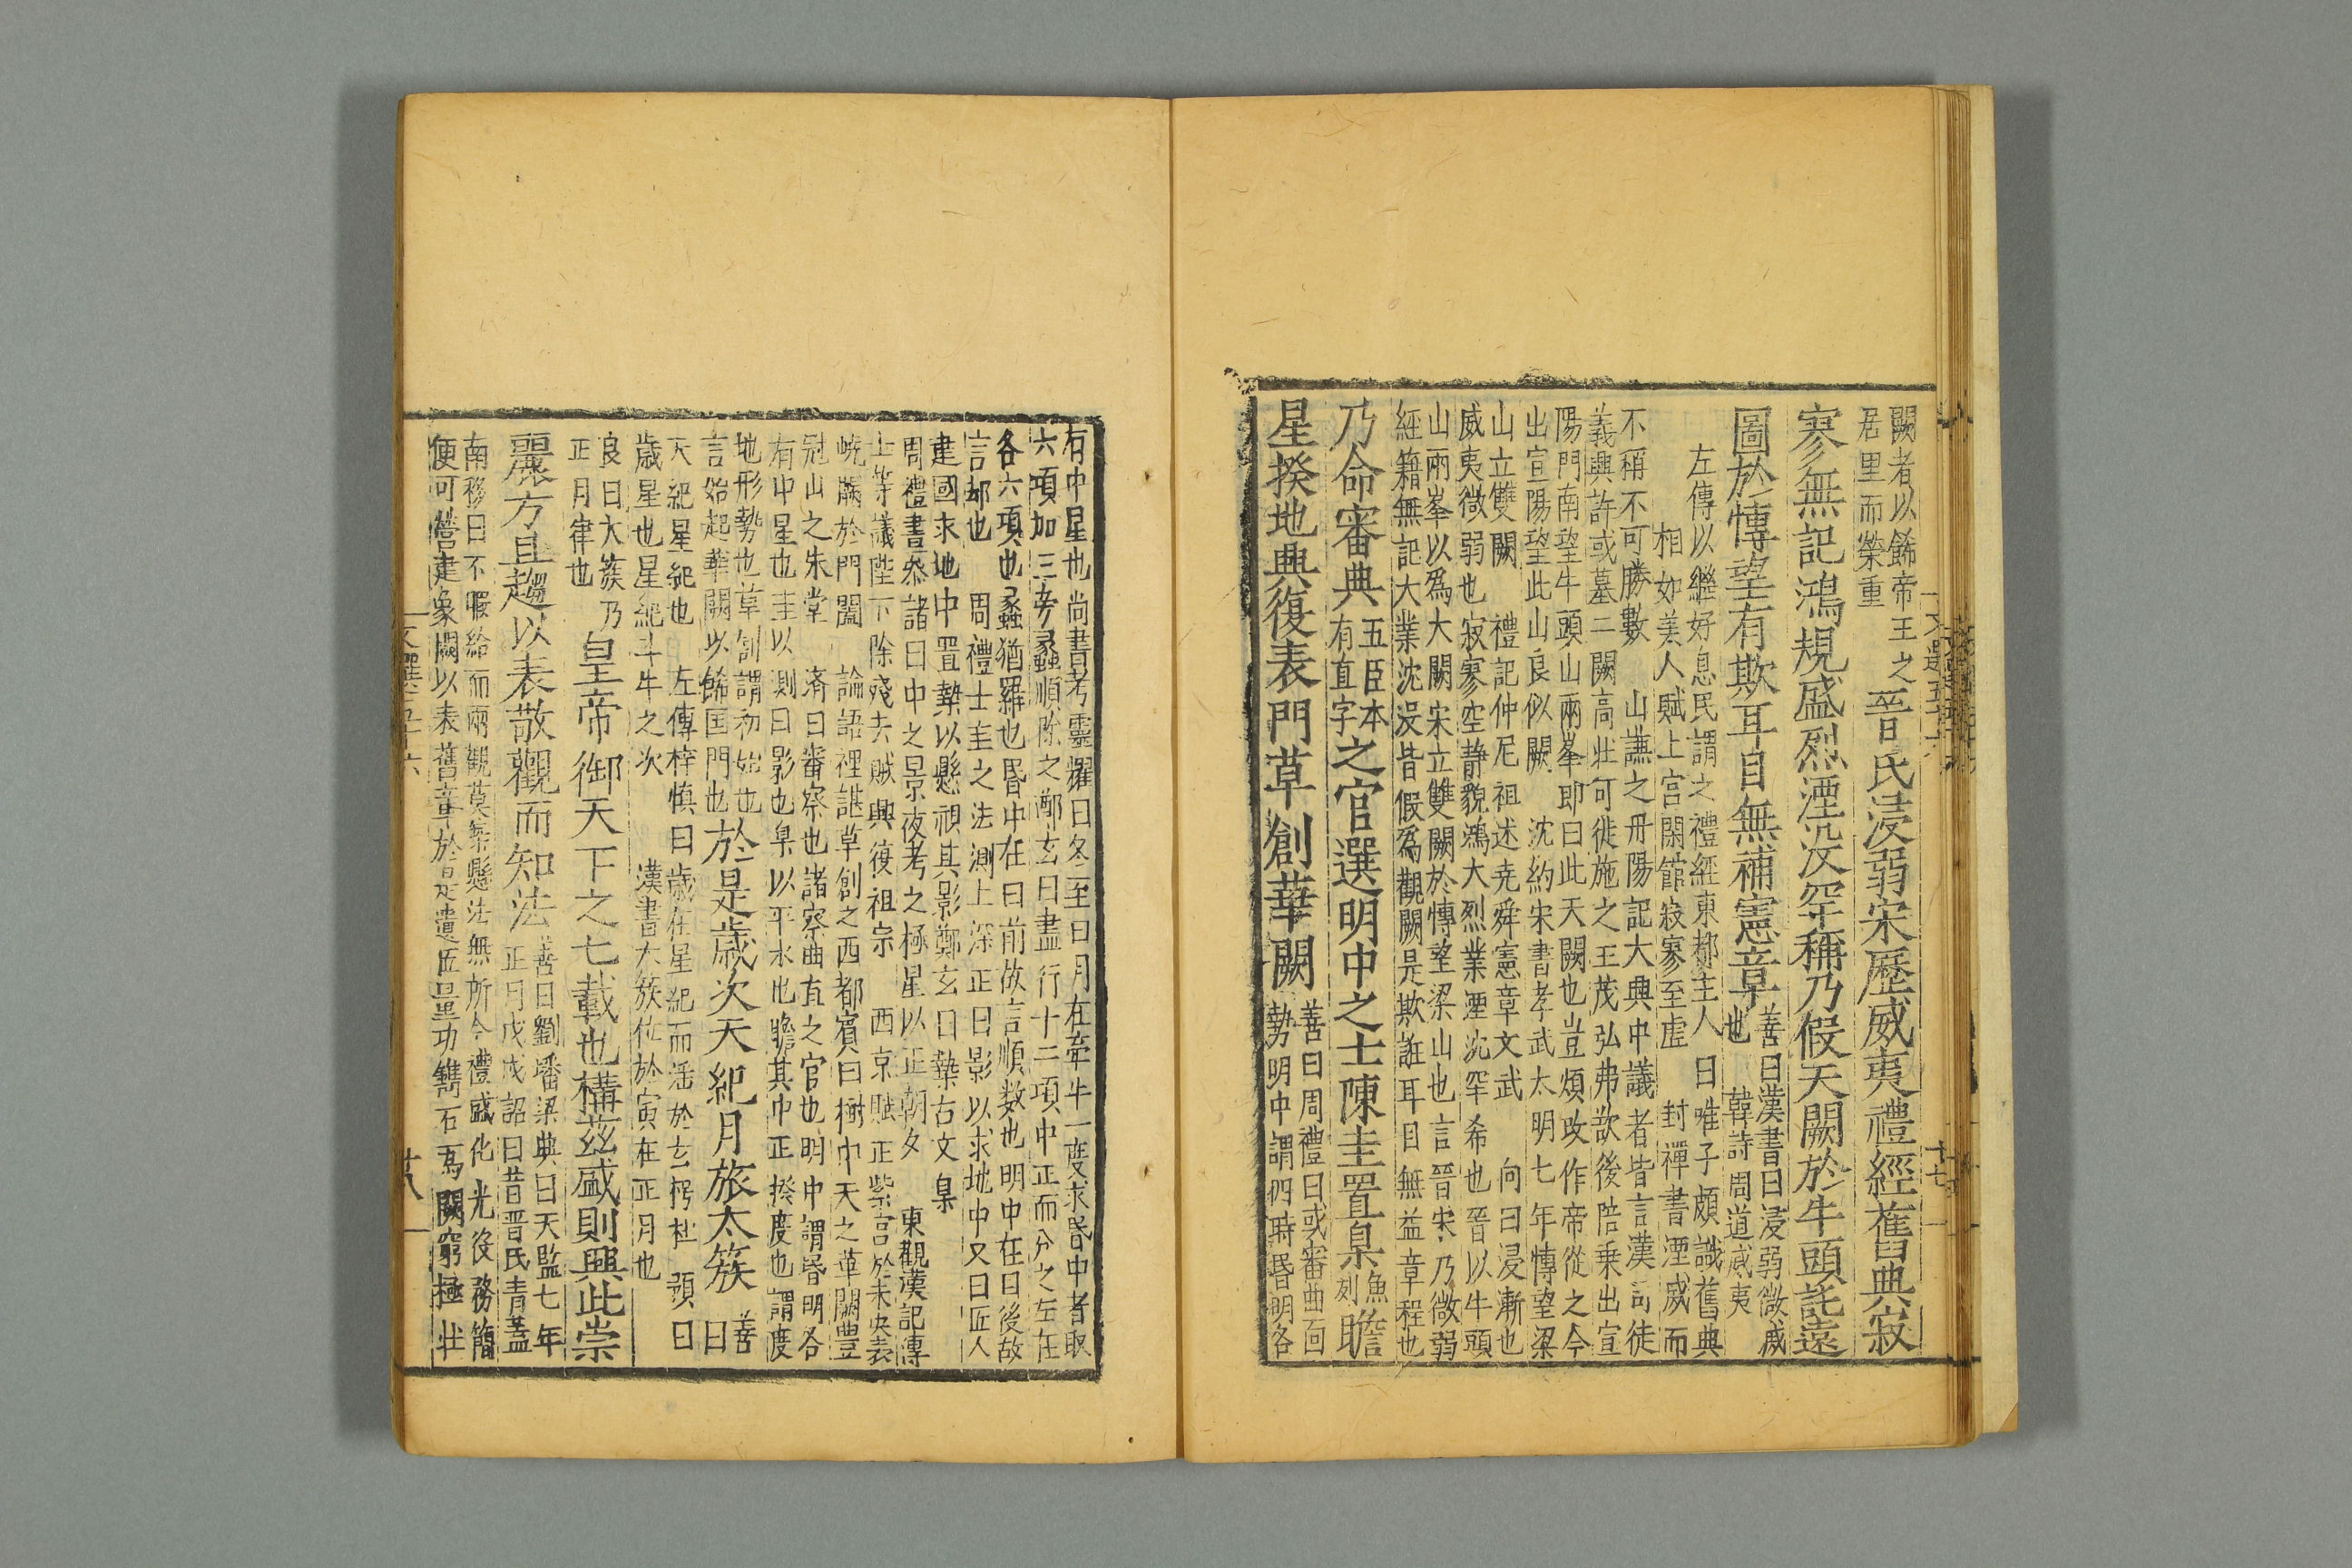 闕者以餙帝王之
居里而榮重
晉氏浸弱宋歷威夷禮經舊典寂
寥無記鴻規盛烈湮没罕稱乃假天闕於牛頭託遠
圖於慱望有欺耳目無補憲章
善曰漢書曰浸弱微威
也 韓詩周道威夷
左傳以繼好息民謂之禮經東都主人曰唯子頗識舊典
相如美人賦上宮閑館寂寥至虛 封禪書湮威而
不稱不可勝數 山謙之丹陽記大典中議者皆言漢司徒
義興許或墓二闕高壯可徙施之王茂弘弗欲後陪乗出宣
陽門南望牛頭山兩峯即曰此天闕也豈煩改作帝從之今
出宣陽望此山良似闕 沈約宋書孝武太明七年慱望梁
山立雙闕 禮記仲尼祖述尭舜憲章文武 向曰浸漸也
威夷微弱也寂寥空静貌鴻大烈業湮沈罕希也晉以牛頭
山兩峯以爲大闕宋立雙闕於慱望梁山也言晉宋乃微弱
經籍無記大業沈没皆假爲觀闕是欺誑耳目無益章程也
乃命審典
五臣本
有直字
之官選明中之士陳圭置臬
魚
列
瞻
星揆地興復表門草創華闕
善曰周禮曰或審曲面
勢明中謂四時昏明各
有中星也尚書考靈耀曰冬至日月在牽牛一度求昏中者取
六項加三旁蠡順除之鄭玄曰盡行十二項中正而分之左右
各六項也蠡猶羅也昏中在日前故言順数也明中在日後故
言却也 周禮士圭之法測土深正日影以求地中又曰匠人
建國求地中置槷以懸視其影鄭玄曰槷古文臬
周禮晝叅諸日中之景夜考之極星以正朝夕 東觀漢記傳
士等議陛下除殘去賊興復祖宗 西京賦正紫宮於未央表
嶢闕於門闥 論語裨諶草創之西都賓曰樹中天之華闕豊
冠山之朱堂 濟曰審察也諸察曲直之官也明中謂昏明各
有中星也圭以測日影也臬以平水也瞻其中正揆度也謂度
地形勢也草創謂初始也
言始起華闕以餙国門也
於是歳次天紀月旅太簇
善
曰
天紀星紀也 左傳梓慎曰歳在星紀而滛於玄枵杜預曰
歳星也星紀斗牛之次 漢書大簇位於寅在正月也
良曰大簇乃
正月律也
皇帝御天下之七載也構茲盛則興此崇
麗方且趨以表敬觀而知法
善曰劉璠梁典曰天監七年
正月戊戌詔曰昔晋氏青蓋
南移日不暇給而兩觀莫築懸法無所今禮盛化光役務簡
便可營建象闕以表舊章於是遺匠量功鐫石爲闕窮極壮
文選五十六
十七
文選五十六
十八